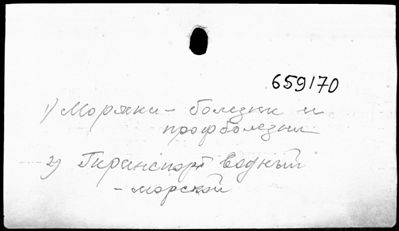 659170
1) Моряки - болезни и
профболезни
2) Транспорт водный
- морской